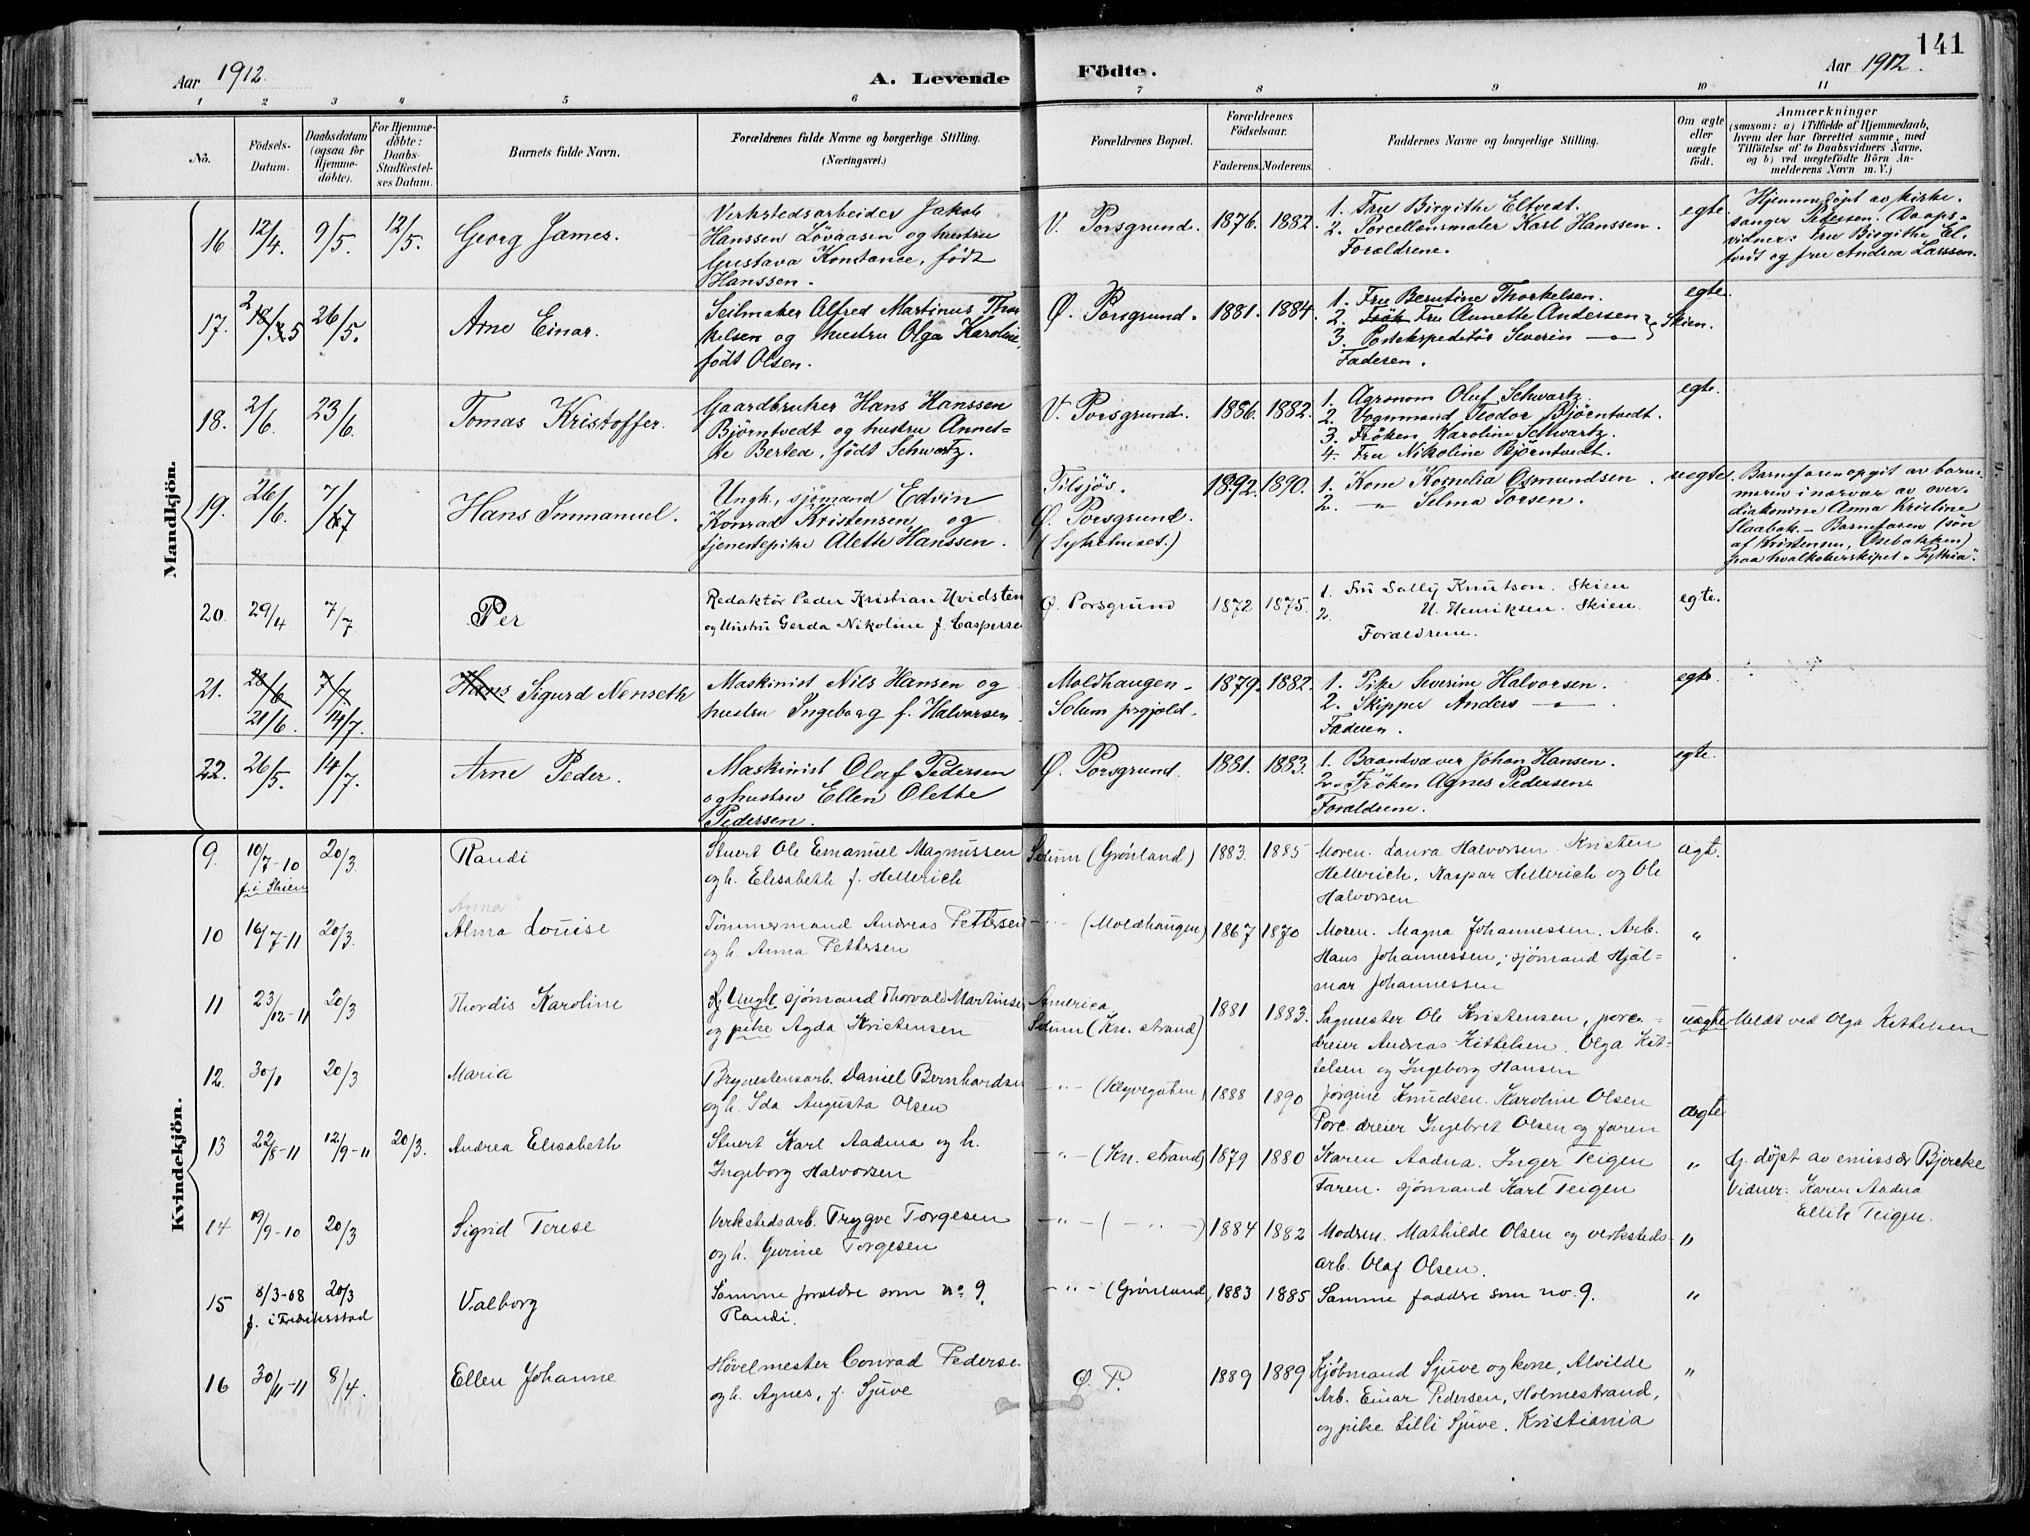 141
Aar 1912.
A. Levende
Födte.
Aar 1912.
1 2 3 4 5 6 7 8 9 10 11
No.
Födsels-
Datum.
Daabsdatum
(ogsaa for
Hjemme-
döbte).
For Hjemme-
döbte:
Daabs-
Stadfæstel-
ses Datum.
Barnets fulde Navn.
Forældrenes fulde Navne og borgerlige Stilling.
(Næringsvei.)
Forældrenes Bopæl.
Forældrenes
Födselsaar.
Faderens. Moderens.
Faddernes Navne og borgerlige Stilling.
Om ægte
eller
uægte
födt.
Anmærkninger
(saasom: a) i Tilfælde af Hjemmedaab,
hvem der har forrettet samme, med
Tilföielse af to Daabsvidners Navne,
og b) ved uægtefödte Börn An-
melderens Navn m. V.)
Mandkjön.
16 12/4. 9/5. 12/5. Georg James.
Verkstedsarbeider Jakob
Hanssen Løvaasen og hustru
Gustava Konstance, født
Hanssen.
V. Porsgrund. 1876. 1882.
1. Fru Birgithe Eltvedt.
2. Porcellænsmaler Karl Hanssen.
Forældrene.
egte.
Hjemmedøpt av kirke-
sanger Pedersen. Daaps-
vidner: Fru Birgithe El-
tvedt og fru Andrea Larssen.
17. 2/5 26/5. Arne Einar.
Seilmaker Alfred Martinus Thor-
kelsen og hustru Olga Karoline,
født Olsen.
Ø. Porsgrund. 1881. 1884.
1. Fru Berntine Thorkelsen.
2. Frøk Fru Annette Andersen
3. Postekspeditør Severin —"—
Faderen.
egte.
Skien.
18. 2/6. 23/6. Tomas Kristoffer.
Gaardbruker Hans Hanssen
Bjørntvedt og hustru Annet-
te Bertea, født Schwartz.
V. Porsgrund. 1886. 1882.
1. Agronom Oluf Schwartz.
2. Vognmand Teodor Bjørntvedt.
3. Frøken Karoline Schwartz.
4. Fru Nikoline Bjørntvedt.
egte.
19. 26/6. 7/7 Hans Immanuel.
Ungk., sjømand Edvin
Konrad Kristensen og
tjenestepike Alette Hanssen.
Tilsjøs.
Ø. Porsgrund.
(Sykehuset.)
1892. 1890.
1. Kone Kornelia Osmundsen.
2. —"— Selma Torsen.
uegte.
Barnefaren opgit av barne-
moren i nærvær av over-
diakonisse Anna Kristine
Slaabak. – Barnefaren (søn
af Kristensen, Osebakken)
paa hvalkokerskipet "Pythia".
20. 29/4 7/7 Per
Redaktør Peder Kristian Hvidsten
og Hustru Gerda Nikoline f. Casperse
Ø. Porsgrund 1872 1875.
1. Fru Sally Knutson. Skien
2. U. Henriksen. Skien.
Forældrene.
egte.
21. 28/6 7/7 Hans Sigurd Nenseth
21/6. 14/7.
Maskinist Nils Hansen og
hustru Ingeborg f. Halvorsen
Moldhaugen –
Solum prgjæld –
1879. 1882.
1. Pike Severine Halvorsen.
2. Skipper Anders —"—.
Faderen.
egte.
22. 26/5. 14/7. Arne Peder.
Maskinist Olaf Pedersen
og hustru Ellen Olette
Pedersen.
Ø. Porsgrund. 1881. 1883.
1. Baandvæver Johan Hansen.
2. Frøken Agnes Pedersen
Forældrene.
egte.
Kvindekjön.
9. 10/7-10 20/3. Randi
f. i Skien
Stuert Ole Emanuel Magnussen
og h. Elisabeth f. Hellerich
Solum (Grønland) 1883. 1885
Moren. Laura Halvorsen. Kristen
Hellerich, Kaspar Hellerich og Ole
Halvorsen
ægt.
Anna?
10 16/7-11 20/3. Alma Louise
Tømmermand Andreas Pettersen
og h. Anna Pettersen
—"— (Moldhaugen) 1867 1870
Moren. Magna Johannessen. Arb.
Hans Johannessen, sjømand Hjal-
mar Johannessen
"
11 23/12-11 20/3 Thordis Karoline
Ungk sjømand Thorvald Martinse
og pike Agda Kristensen
America
Solum (Kn. strand)
1881 1883.
Sagmester Ole Kristensen, porc.-
dreier Andreas Kittelsen. Olga Kit-
telsen og Ingeborg Hansen
uægte
Meldt ved Olga Kittelsen
12. 30/1 20/3 Maria
Brynestensarb. Daniel Bernhardse
og h. Ida Augusta Olsen
—"— (Klyvegaten) 1888 1890
Jørgine Knudsen. Karoline Olsen
Porc. dreier Ingebret Olsen og faren
ægte
13 22/8-11 12/9-11 20/3. Andrea Elisabeth
Stuert Karl Aadna og h.
Ingeborg Halvorsen
—"— (Kn. strand) 1879 1880
Karen Aadna. Inger Teigen
Faren. sjømand Karl Teigen
"
Hj. døpt av emissær Bjercke
Vidner: Karen Aadna
Ellik Teigen.
14 19/9-10 20/3 Sigrid Terese
Verkstedsarb. Trygve Torgesen
og h. Gurine Torgesen
—"— (—"—) 1884 1882
Modren. Mathilde Olsen og verksteds-
arb. Olaf Olsen.
"
15 8/3-08 20/3 Valborg
f. i Fredriksstad
Samme forældre som no 9
Randi.
—"— (Grønland, 1883 1885 Samme faddre som no. 9. "
16 30/11-11 8/4. Ellen Johanne
Høvelmester Conrad Pederse
og h. Agnes, f. Sjuve
Ø. P. 1889 1889
Kjøbmand Sjuve og kone, Alvilde
Arb. Einar Pedersen, Holmestrand,
og pike Lilli Sjuve. Kristiania
"